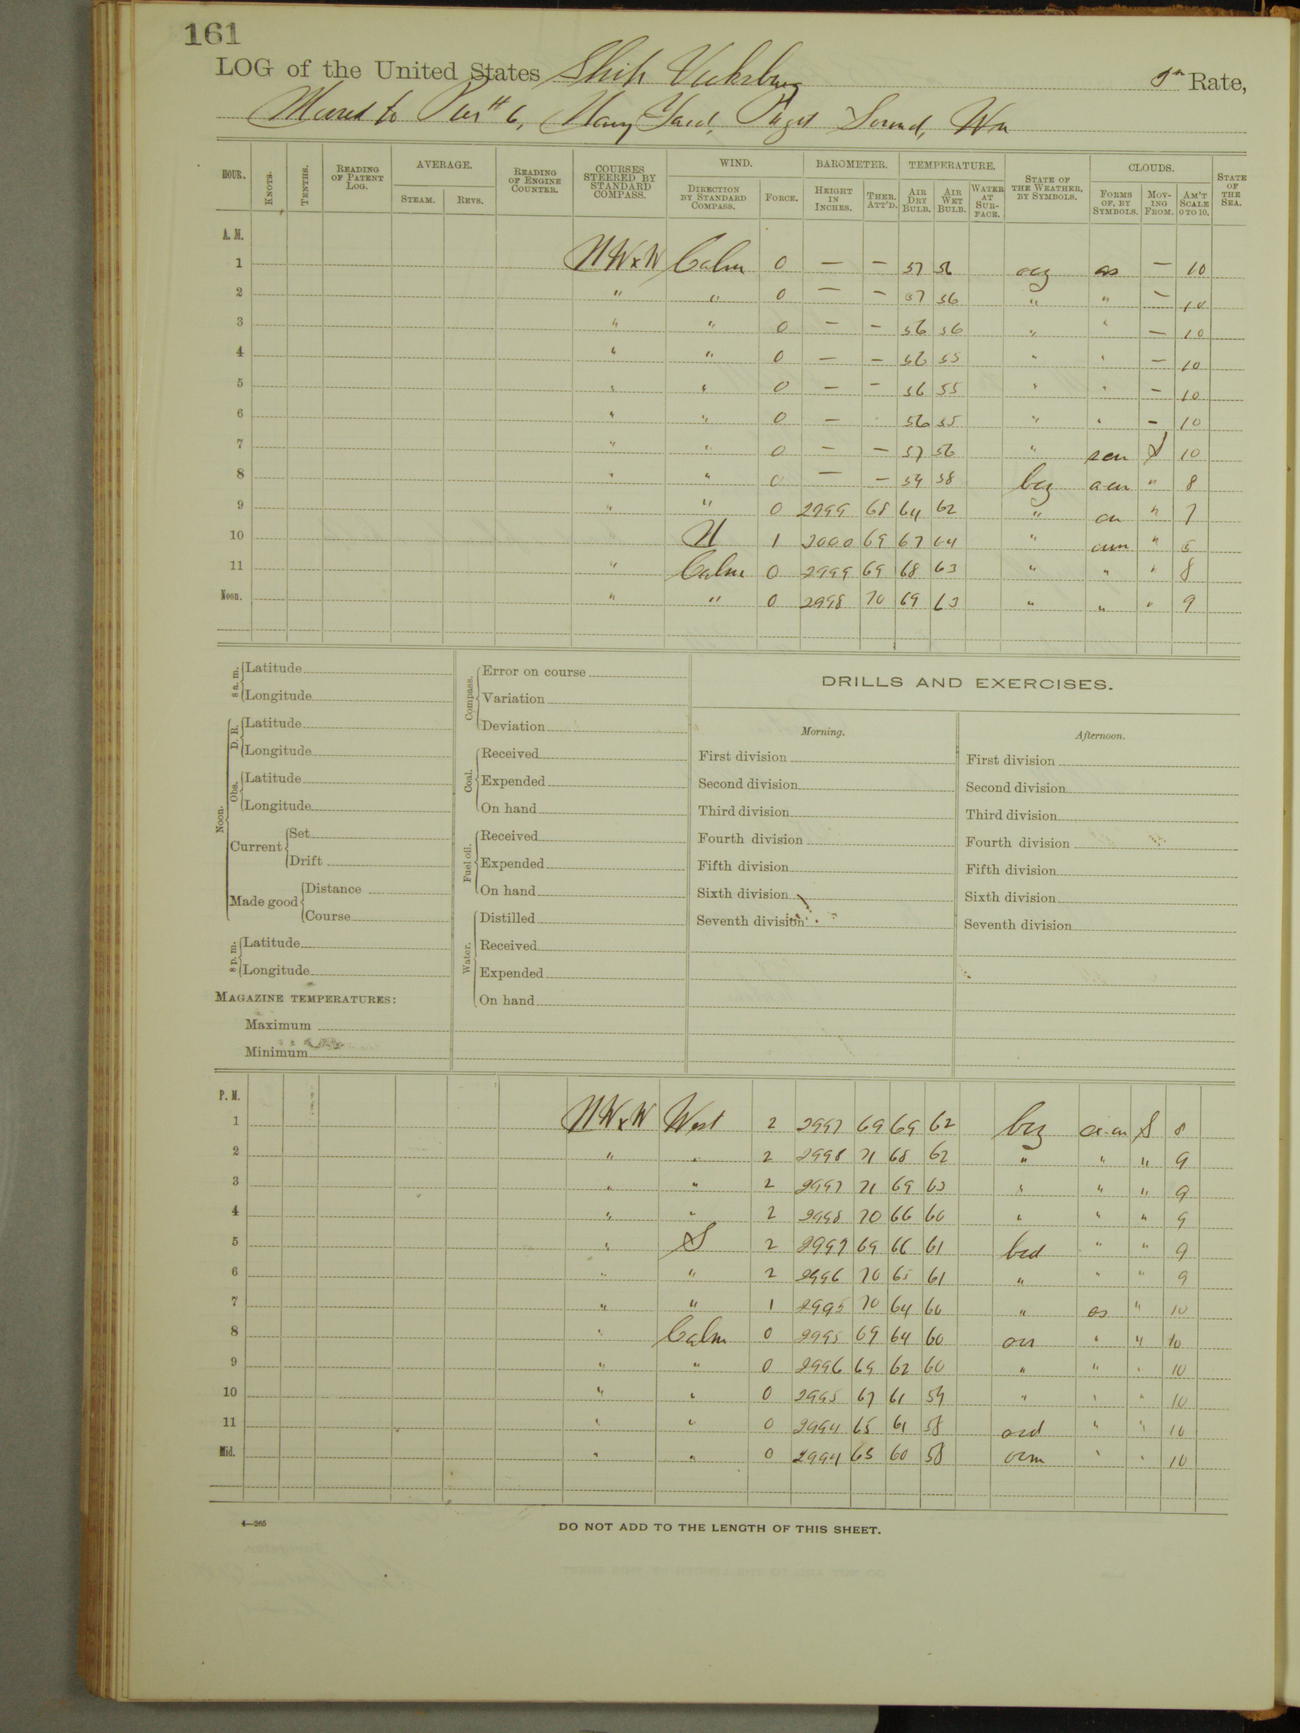 161
LOG of the United States Ship Vicksburg Rate,
Moored to Pier # 6, Navy Yard, Puget Sound, Wn
HOUR. KNOTS. TENTHS. READING OF PATENT LOG. AVERAGE. STEAM. REVS. READING OF ENGINE COUNTER. COURSES STEERED BY STANDARD COMPASS. WIND. DIRECTION BY STANDARD COMPASS. FORCE. BAROMETER. HEIGHT IN INCHES. THER. ATT'D. TEMPERATURE. AIR DRY BULB. AIR WET BULB. WATER AT SURFACE. STATE OF THE WEATHER, BY SYMBOLS. CLOUDS. FORMS OF, BY SYMBOLS. MOVING FROM. AM'T SCALE 0 TO 10. STATE OF THE SEA.
A. M.
1 NWxW Calm 0 — — 57 56 ocz as — 10
2 " " 0 — — 57 56 " " — 10
3 " " 0 — — 56 56 " " — 10
4 " " 0 — — 56 55 " " — 10
5 " " 0 — — 56 55 " " — 10
6 " " 0 — 56 55 " " — 10
7 " " 0 — — 57 56 " scu S 10
8 " " 0 — — 59 58 bcz acu " 8
9 " " 0 2999 68 64 62 " " 7
10 N 1 3000 69 67 64 " " 5
11 " Calm 0 2999 69 68 63 " " " 8
Noon. " " 0 2998 70 69 63 " " " 9
8 a. m. Latitude
Longitude
Noon. D. R. Latitude
Longitude
Obs. Latitude
Longitude
Current Set
Drift
Made good Distance
Course
8 p. m. Latitude
Longitude
MAGAZINE TEMPERATURES:
Maximum
Minimum
Compass. Error on course
Variation
Deviation
Coal. Received
Expended
On hand
Fuel oil. Received
Expended
On hand
Water. Distilled
Received
Expended
On hand
DRILLS AND EXERCISES.
Morning.
First division
Second division
Third division
Fourth division
Fifth division
Sixth division
Seventh division
Afternoon.
First division
Second division
Third division
Fourth division
Fifth division
Sixth division
Seventh division
P. M.
1 NWxW West 2 2997 69 69 62 bcz S 8
2 " " 2 2998 71 68 62 " " " 9
3 " " 2 2997 71 69 63 " " " 9
4 " " 2 2998 70 66 60 " " " 9
5 " S 2 2997 69 66 61 bcd " " 9
6 " " 2 2996 70 65 61 " " " 9
7 " " 1 2995 70 64 60 " as " 10
8 " Calm 0 2995 69 64 60 " " 10
9 " " 0 2996 69 62 60 " " " 10
10 " " 0 2995 67 61 59 " " " 10
11 " " 0 2994 65 61 58 ocd " " 10
Mid. " " 0 2994 65 60 58 ocm " " 10
4—265
DO NOT ADD TO THE LENGTH OF THIS SHEET.